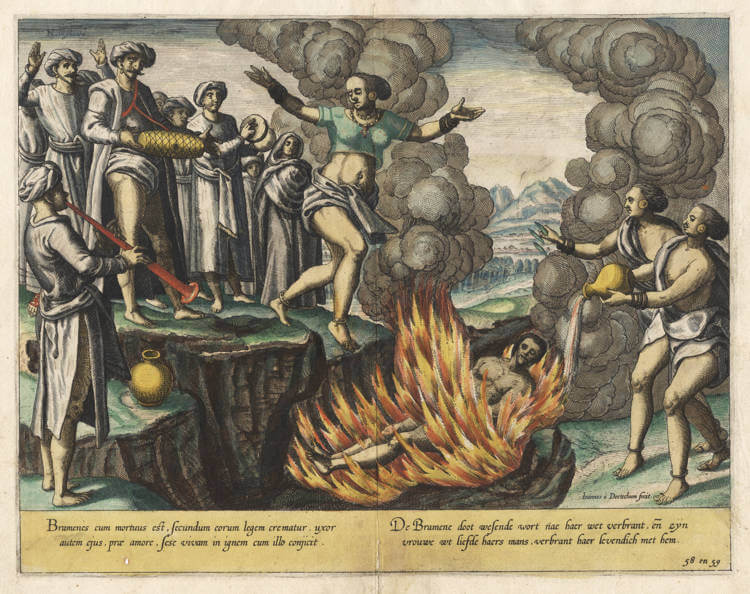 Bramenes cum mortuus est, secundum eorum legem crematur, uxor
autem ejus, præ amore, sese vivam in ignem cum illo conjicit.
De Bramene doot wesende wort nae haer wet verbrant, en zyn
vrouwe wt liefde haers mans, verbrant haer levendich met hem.
Ioannes à Doetechum fecit.
58 en 59